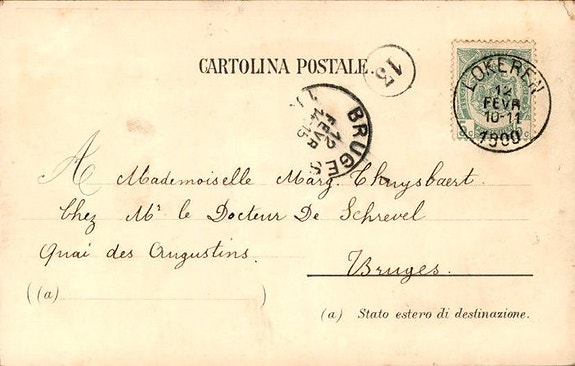 CARTOLINA POSTALE
13
LOKEREN
12
FEVR
10-11
1900
BRUGES
12
FEVR
A Mademoiselle Marg. Thuysbaert.
Chez Mr le Docteur De Schrevel
Quai des Augustins.
Bruges.
((a) )
(a) Stato estero di destinazione.